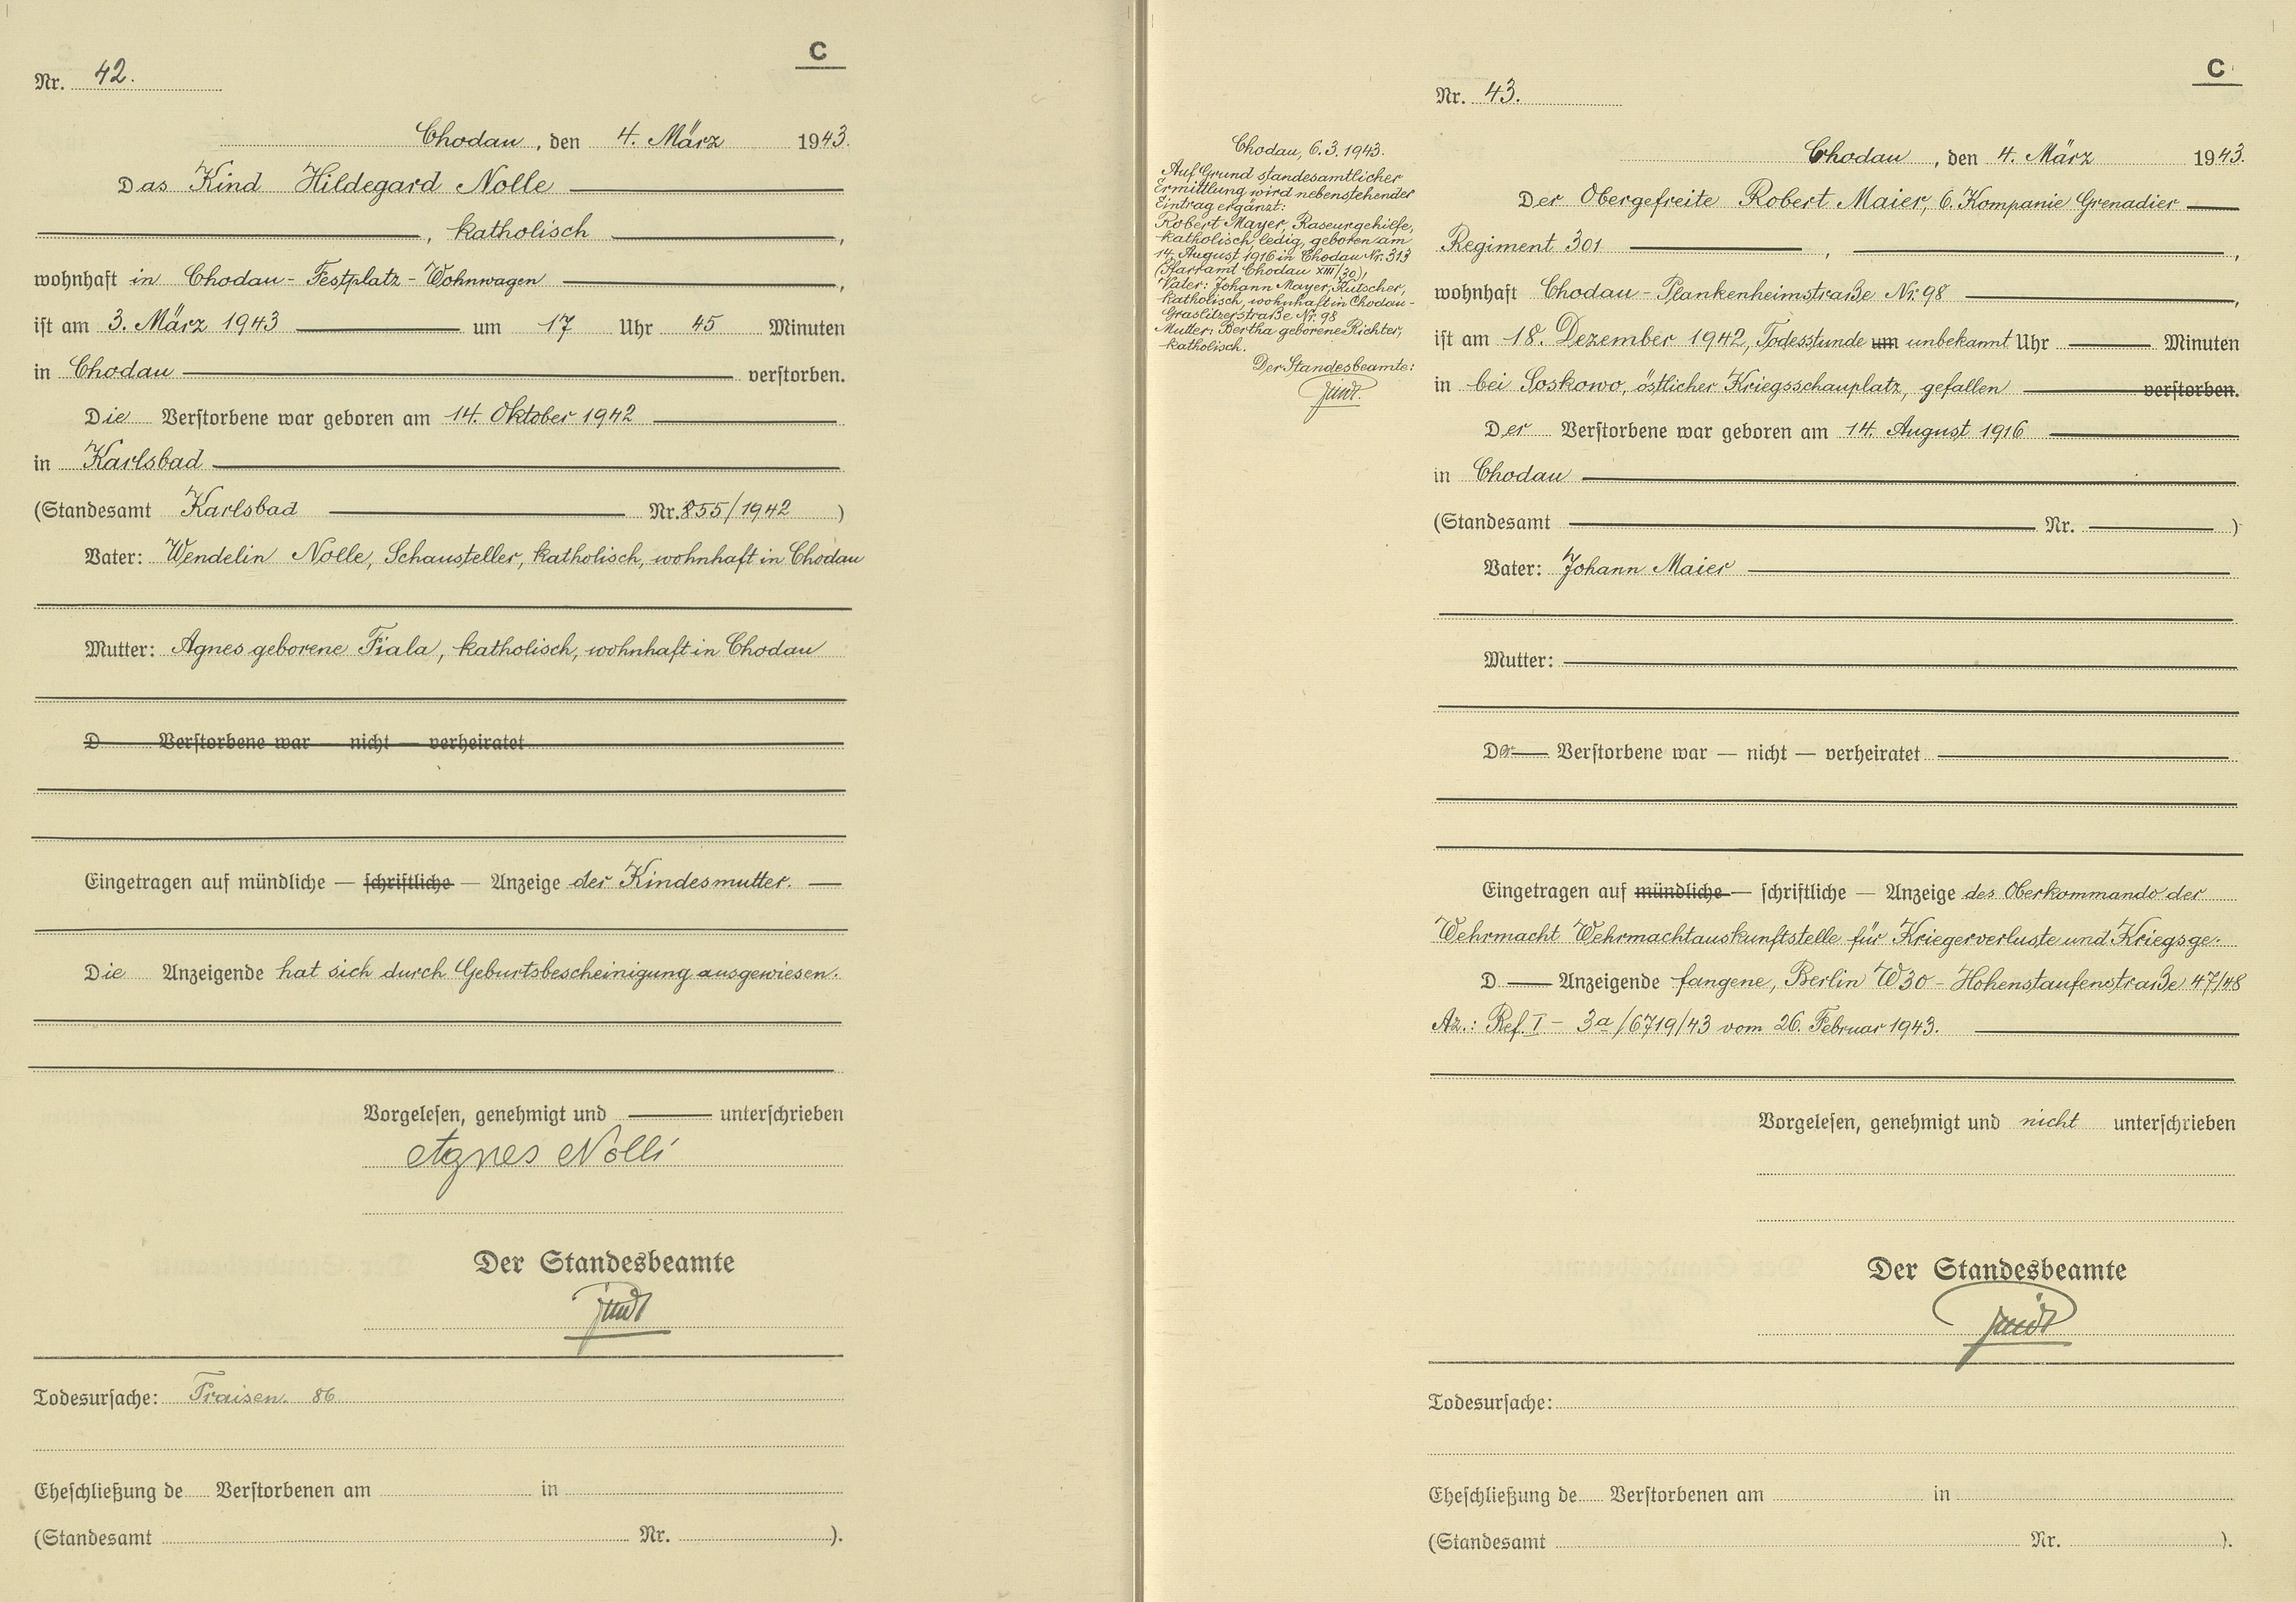 C
Nr. 42.
Chodau, den 4. März 1943.
Das Kind Hildegard Nolle
, katholisch ,
wohnhaft in Chodau - Festplatz - Wohnwagen ,
ist am 3. März 1943 um 17 Uhr 45 Minuten
in Chodau verstorben.
Die Verstorbene war geboren am 14. Oktober 1942
in Karlsbad
(Standesamt Karlsbad Nr. 855/1942 )
Vater: Wendelin Nolle, Schausteller, katholisch, wohnhaft in Chodau
Mutter: Agnes geborene Fiala, katholisch, wohnhaft in Chodau
D Verstorbene war — nicht — verheiratet
Eingetragen auf mündliche — schriftliche — Anzeige der Kindesmutter.
Die Anzeigende hat sich durch Geburtsbescheinigung ausgewiesen.
Vorgelesen, genehmigt und unterschrieben
Agnes Nolli
Der Standesbeamte
Todesursache: Fraisen. 86
Eheschließung de Verstorbenen am in
(Standesamt Nr. ).
C
Nr. 43.
Chodau, den 4. März 1943.
Der Obergefreite Robert Maier, 6. Kompanie Grenadier
Regiment 301 , ,
wohnhaft Chodau - Plankenheimstraße Nr. 98 ,
ist am 18. Dezember 1942, Todesstunde um unbekannt Uhr Minuten
in bei Soskowo, östlicher Kriegsschauplatz, gefallen verstorben.
Der Verstorbene war geboren am 14. August 1916
in Chodau
(Standesamt Nr. )
Vater: Johann Maier
Mutter:
Der Verstorbene war — nicht — verheiratet
Eingetragen auf mündliche — schriftliche — Anzeige des Oberkommando der
Wehrmacht Wehrmachtauskunftstelle für Kriegerverluste und Kriegsge-
D Anzeigende fangene, Berlin W 30 - Hohenstaufenstraße 47/48
Az.: Ref. I - 3a/6719/43 vom 26. Februar 1943.
Vorgelesen, genehmigt und nicht unterschrieben
Der Standesbeamte
Todesursache:
Eheschließung de Verstorbenen am in
(Standesamt Nr. ).
Chodau, 6.3.1943.
Auf Grund standesamtlicher
Ermittlung wird nebenstehender
Eintrag ergänzt:
Robert Mayer, Raseurgehilfe,
katholisch, ledig, geboren am
14. August 1916 in Chodau Nr. 313
(Pfarramt Chodau XIII/30),
Vater: Johann Mayer, Kutscher,
katholisch, wohnhaft in Chodau -
Graslitzerstraße Nr. 98
Mutter: Bertha geborene Richter,
katholisch.
Der Standesbeamte: